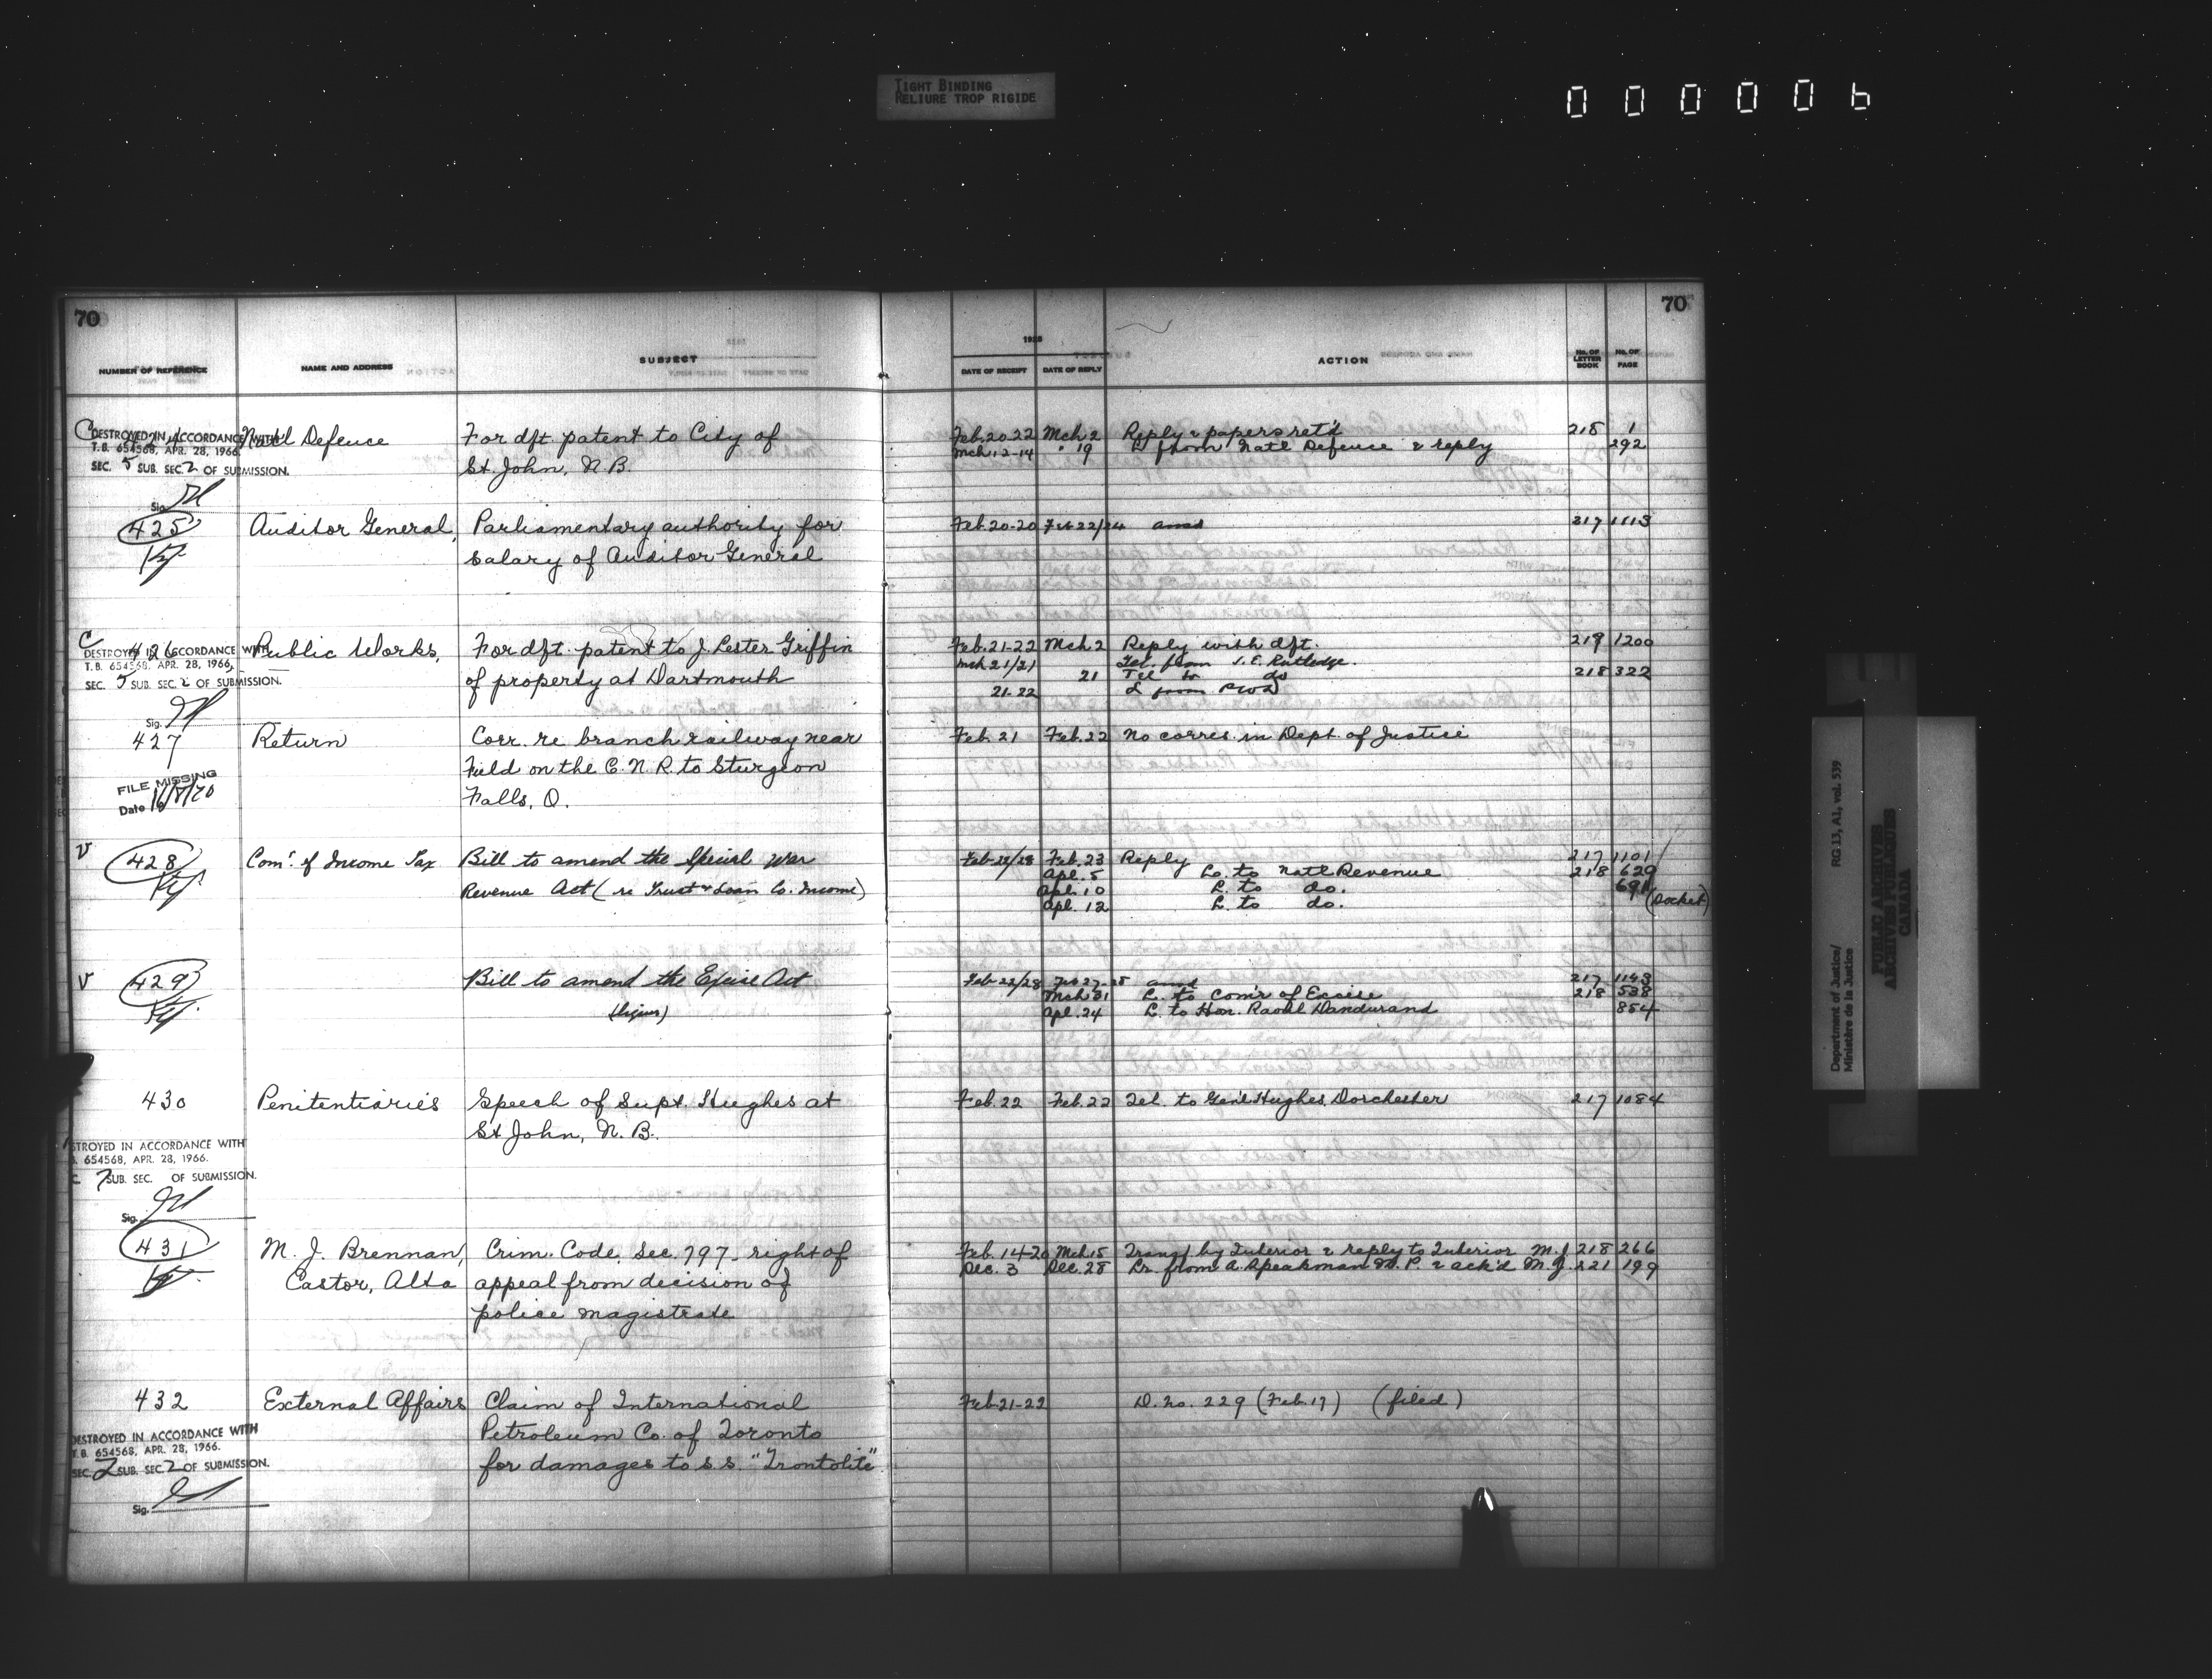 TIGHT BINDING
RELIURE TROP RIGIDE
000006
70
70
NUMBER OF REFERENCE NAME AND ADDRESS SUBJECT 1928 DATE OF RECEIPT DATE OF REPLY ACTION No. OF LETTER BOOK No. OF PAGE
C 424 Nat'l Defence For dft. patent to City of Feb. 20 22 Mch 2 Reply & papers ret'd 218 1
DESTROYED IN ACCORDANCE WITH
T.B. 654568, APR. 28, 1966. Mch 12-14 " 19 L from Nat'l Defence & reply 292
SEC. 5 SUB. SEC. 2 OF SUBMISSION. St. John, N.B.
Sig.
425 Auditor General, Parliamentary authority for Feb. 20-20 Feb 22/24 ansd 217 1113
salary of Auditor General
C 426 Public Works, For dft. patent to J. Lester Griffin Feb. 21-22 Mch. 2 Reply with dft. 219 1200
DESTROYED IN ACCORDANCE WITH
T.B. 654568, APR. 28, 1966. Mch 21/21 Tel. from J. E. Rutledge.
SEC. 5 SUB. SEC. 2 OF SUBMISSION. of property at Dartmouth 21 Tel to do 218 322
21-22 L from PWD
Sig.
427 Return Corr. re branch railway near Feb. 21 Feb. 22 No corres. in Dept. of Justice
Field on the C.N.R. to Sturgeon
FILE MISSING
Date 16/8/70 Falls, O.
V 428 Comr. of Income Tax Bill to amend the Special War Feb 22/28 Feb. 23 Reply 217 1101
Apl. 5 L. to Nat'l Revenue 218 629
Revenue Act (re Trust & Loan Co. Income) Apl. 10 L. to do. 691
Apl. 12 L. to do. (Docket)
V 429 Bill to amend the Excise Act Feb 22/28 Feb 27-28 ansd 217 1143
Mch 31 L. to Com'r of Excise 218 538
(liquor) Apl. 24 L. to Hon. Raoul Dandurand 854
430 Penitentiaries Speech of Supt. Hughes at Feb. 22 Feb. 22 Tel. to Gen'l Hughes, Dorchester 217 1084
St John, N.B.
STROYED IN ACCORDANCE WITH
B. 654568, APR. 28, 1966.
C. 7 SUB. SEC. OF SUBMISSION.
Sig.
431 M. J. Brennan, Crim. Code, Sec. 797 - right of Feb. 14-20 Mch 15 Transf. by Interior & reply to Interior M.J. 218 266
Dec. 3 Dec. 28 Lr. from A. Speakman M.P. & ack'd M.J. 221 199
Castor, Alta appeal from decision of
police magistrate
432 External Affairs Claim of International Feb. 21-22 D. no. 229 (Feb. 17) (filed)
DESTROYED IN ACCORDANCE WITH Petroleum Co. of Toronto
T.B. 654568, APR. 28, 1966.
SEC. 2 SUB. SEC. 2 OF SUBMISSION. for damages to s.s. "Trontolite"
Sig.
Department of Justice/
Ministère de la Justice
RG 13, A1, vol. 539
PUBLIC ARCHIVES
ARCHIVES PUBLIQUES
CANADA